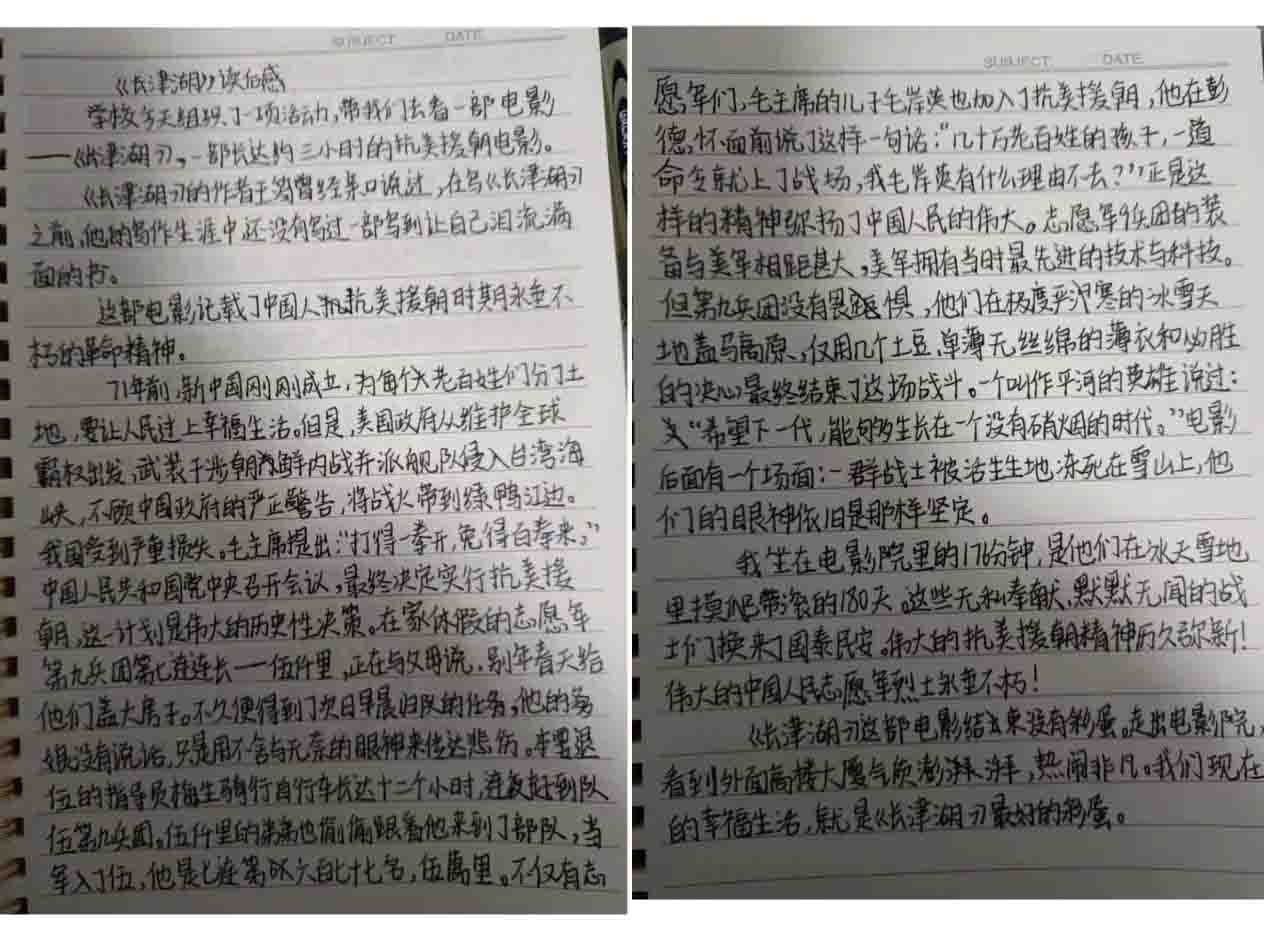 SUBJECT DATE
《长津湖》读后感
学校今天组织了一项活动,带我们去看一部电影
——《长津湖》,一部长达约三小时的抗美援朝电影。
《长津湖》的作者王筠曾经亲口说过,在写《长津湖》
之前,他的写作生涯中还没有写过一部写到让自己泪流满
面的书。
这部电影记载了中国人抗美援朝时期永垂不
朽的革命精神。
71年前,新中国刚刚成立,为每个老百姓们分了土
地,要让人民过上幸福生活。但是,美国政府从维护全球
霸权出发,武装干涉朝鲜内战并派舰队侵入台湾海
峡,不顾中国政府的严正警告,将战火带到绿鸭江边。
我国受到严重损失。毛主席提出:“打得一拳开,免得百拳来。”
中国人民共和国党中央召开会议,最终决定实行抗美援
朝,这一计划是伟大的历史性决策。在家休假的志愿军
第九兵团第七连连长——伍仟里,正在与父母说,别年春天给
他们盖大房子。不久便得到了次日早晨归队的任务,他的爸
娘没有说话,只是用不舍与无奈的眼神来传达悲伤。本要退
伍的指导员梅生骑行自行车长达十二个小时,连夜赶到队
伍第九兵团。伍仟里的弟弟也偷偷跟着他来到了部队,当
军入了伍,他是七连第 六百七十七名,伍萬里。不仅有志
SUBJECT DATE
愿军们,毛主席的儿子毛岸英也加入了抗美援朝,他在彭
德怀面前说了这样一句话:“几十万老百姓的孩子,一道
命令就上了战场,我毛岸英有什么理由不去?”正是这
样的精神弥扬了中国人民的伟大。志愿军兵团的装
备与美军相距甚大,美军拥有当时最先进的技术与科技。
但第九兵团没有畏惧,他们在极度严寒的冰雪天
地盖马高原、仅用几个土豆、单薄无丝绵的薄衣和必胜
的决心最终结束了这场战斗。一个叫作平河的英雄说过:
“希望下一代,能够生长在一个没有硝烟的时代。”电影
后面有一个场面:一群战士被活生生地冻死在雪山上,他
们的眼神依旧是那样坚定。
我坐在电影院里的176分钟,是他们在冰天雪地
里摸爬带滚的180天。这些无私奉献、默默无闻的战
士们换来了国泰民安。伟大的抗美援朝精神历久弥新!
伟大的中国人民志愿军烈士永垂不朽!
《长津湖》这部电影结束没有彩蛋。走出电影院,
看到外面高楼大厦气质澎湃,热闹非凡。我们现在
的幸福生活,就是《长津湖》最好的彩蛋。